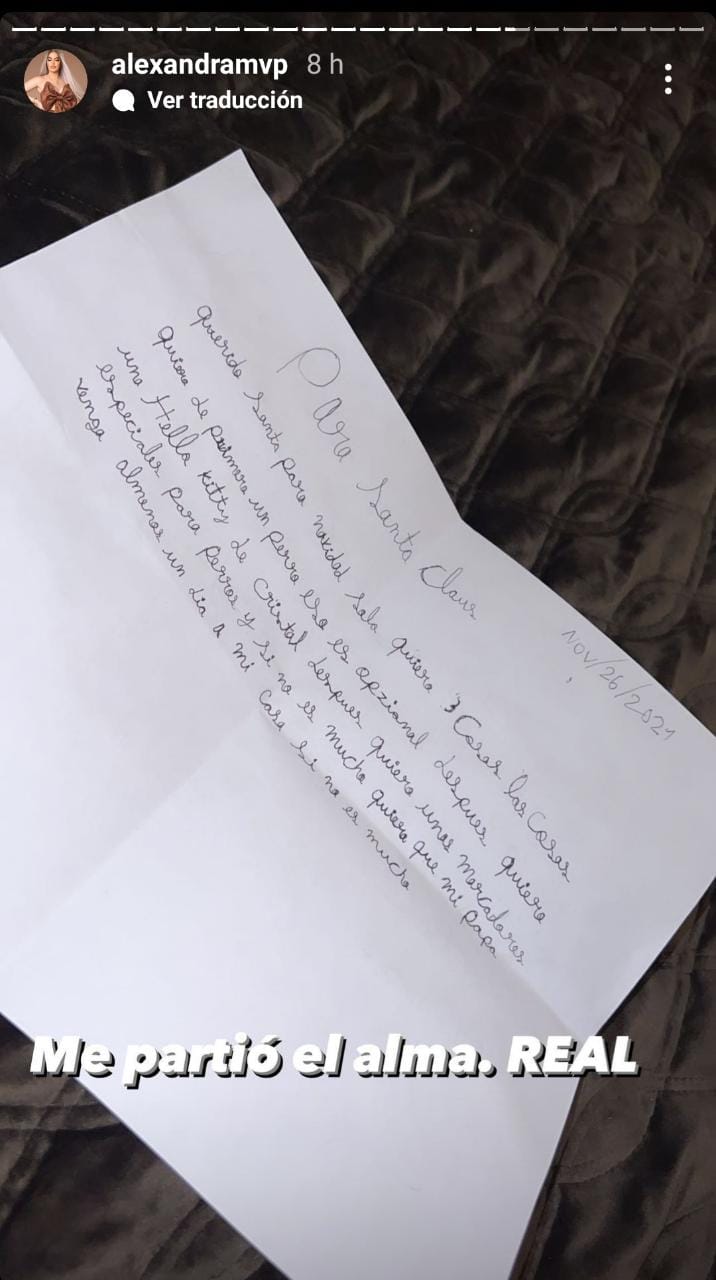 alexandramvp 8 h
Ver traducción
NOV/26/2021
Para Santa Claus
Querido Santa para navidad solo quiero 3 Cosas las Cosas
quiero de primero un perro eso es opzional despues quiero
una Hello kitty de cristal despues quiero unos marcadores
especiales para perros y si no es mucho quiero que mi papa
venga almenos un dia a mi casa si no es mucho
Me partió el alma. REAL